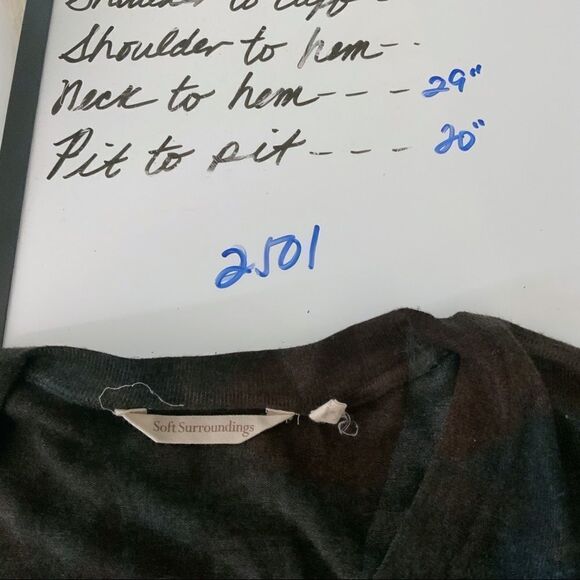 Shoulder to cuff -
Shoulder to hem--
Neck to hem--- 29"
Pit to pit--- 20"
2501
Soft Surroundings